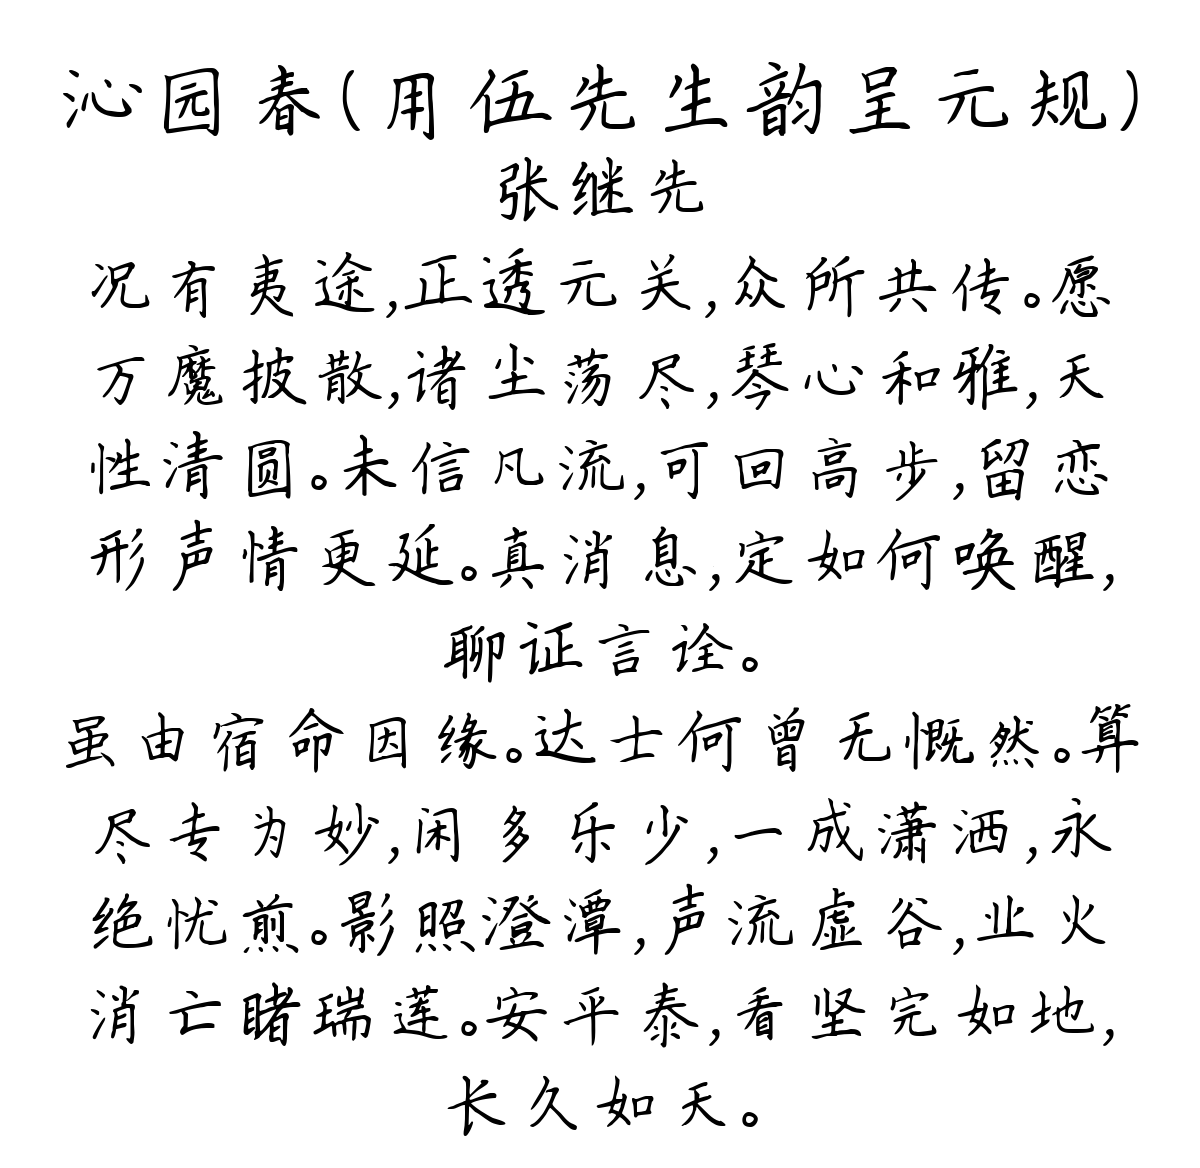 沁园春(用伍先生韵呈元规)
张继先
况有夷途,正透元关,众所共传。愿
万魔披散,诸尘荡尽,琴心和雅,天
性清圆。未信凡流,可回高步,留恋
形声情更延。真消息,定如何唤醒,
聊证言诠。
虽由宿命因缘。达士何曾无慨然。算
尽专为妙,闲多乐少,一成潇洒,永
绝忧煎。影照澄潭,声流虚谷,业火
消亡睹瑞莲。安平泰,看坚完如地,
长久如天。